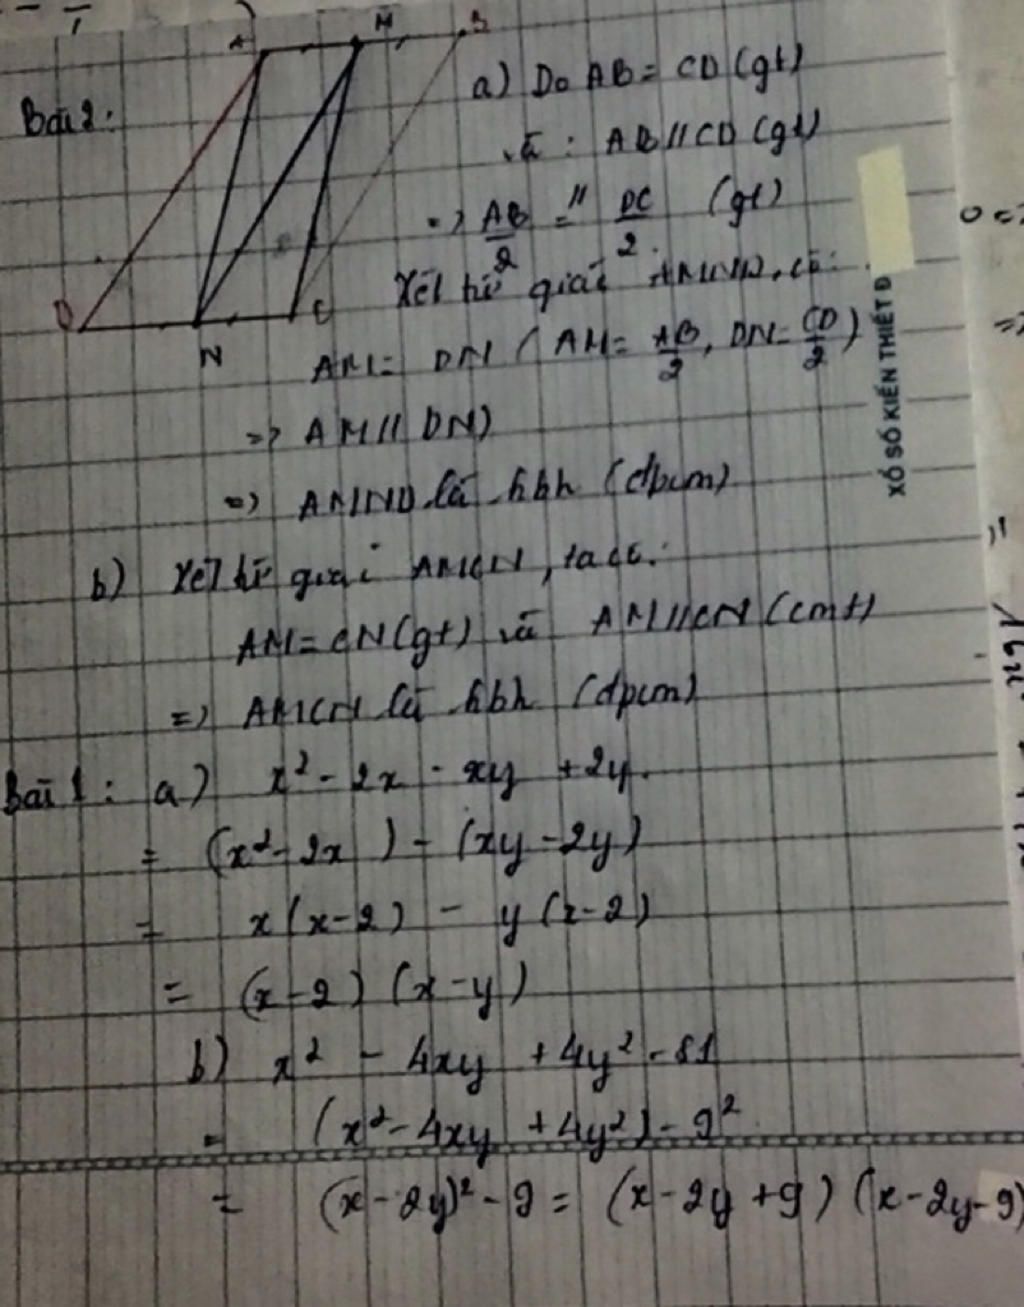 Bài 2:
A M B
D N C
a) Do AB = CD (gt)
và : AB // CD (gt)
=> AB/2 =" DC/2 (gt)
Xét tứ giác AMND, có:
AM = DN (AM = AB/2, DN = CD/2)
=> AM // DN)
=> AMND là hbh (đpcm)
b) Xét tứ giác AMCN, ta có:
AM = CN (gt) và AM // CN (cmt)
=> AMCN là hbh (đpcm)
Bài 1 : a) x² - 2x - xy + 2y.
= (x² - 2x ) - (xy - 2y)
= x(x - 2) - y(x - 2)
= (x - 2) (x - y)
b) x² - 4xy + 4y² - 81
= (x² - 4xy + 4y²) - 9²
= (x - 2y)² - 9 = (x - 2y + 9) (x - 2y - 9)
XỔ SỐ KIẾN THIẾT Đ
0 =>
=>